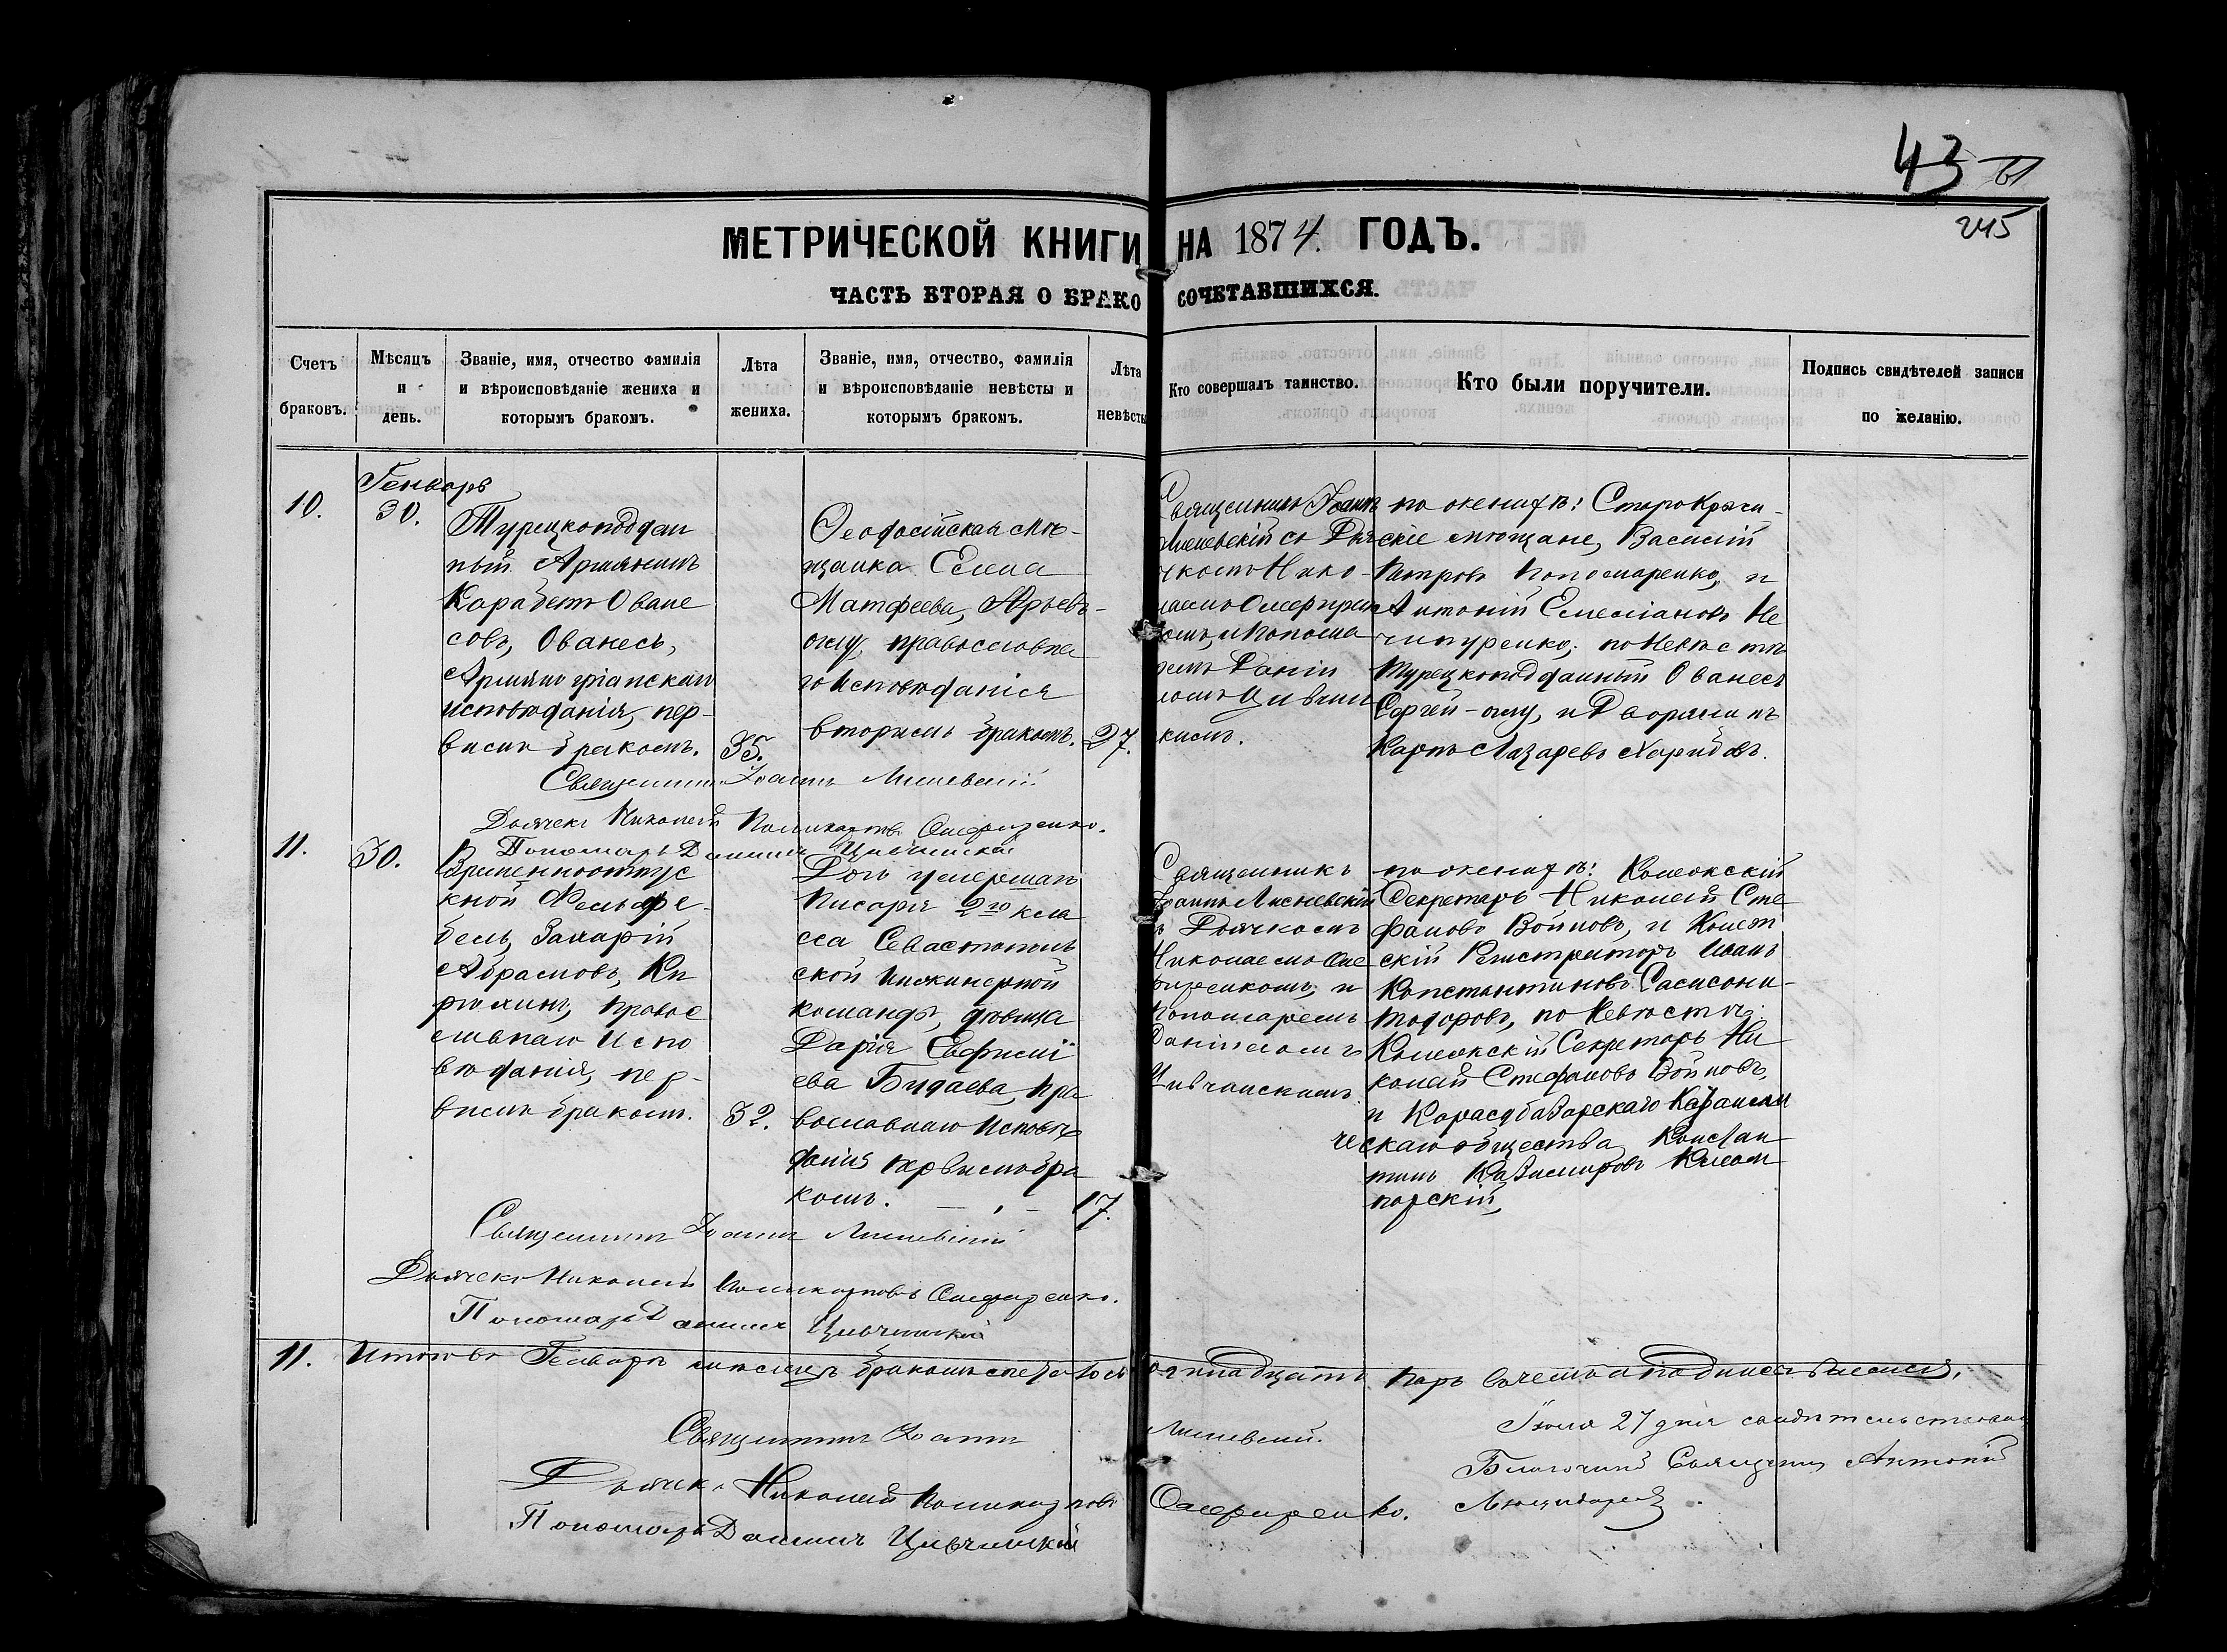 43
245
МЕТРИЧЕСКОЙ КНИГИ НА 1874. ГОДЪ.
ЧАСТЬ ВТОРАЯ О БРАКОСОЧЕТАВШИХСЯ.
Счетъ браковъ.
Мѣсяцъ и день.
Званіе, имя, отчество фамилія
и вѣроисповѣданіе жениха и
которымъ бракомъ.
Лѣта жениха.
Званіе, имя, отчество, фамилія
и вѣроисповѣданіе невѣсты и
которымъ бракомъ.
Лѣта невѣсты
Кто совершалъ таинство.
Кто были поручители.
Подпись свидѣтелей записи
по желанію.
10.
Генварь
30.
Турецкоподдан
ный Армянинъ
Карабетъ Оване
совъ, Ованесъ,
Армяногріанскаго
исповѣданія, пер-
вымъ бракомъ.
35.
Ѳеодосійская мѣ-
щанка Елена
Матфеева,
оглу, православна
го исповѣданія
вторымъ бракомъ.
27.
Священникъ Іоаннъ
Лисневскій съ Дья
чкомъ Нико-
лаемъ Олефирен
комъ, и Понома
ремъ Даніи
ломъ Цивчин
кимъ.
по женихѣ: СтароКрым-
скіе мѣщане, Василій
Петровъ Пономаренко, и
Антоній Емеліановъ Не
чипуренко; по Невѣстѣ
Турецкоподданный Ованесъ
оглу, и Дворянинъ
Карпъ Лазаревъ
Священникъ Іоаннъ Лисневскій
Дьячекъ Николай Поликарповъ Олефиренко.
Пономарь Даніилъ Цивчинскій
11.
30.
Временноотпус
кной Фельдфе-
бель, Захарій
Абрамовъ, Ки
рюхинъ, правос
лавнаго испо
вѣданія, пер-
вымъ бракомъ.
32.
Дочь умершаго
Писаря 2го кла
сса Севастополь
ской Инжинерной
команды, дѣвица
Дарія Евфимі
ева Бидаева, пра
вославнаго исповѣ
данія первымъ бра
комъ.
17.
Священникъ
Іоаннъ Лисневскій
съ Дьячкомъ
Николаемъ Оле
фиренкомъ, и
Пономаремъ
Даніиломъ
Цивчинскимъ
по женихѣ: Коллежскій
Секретарь Николай Сте
фановъ Войновъ, и Коллеж
скій Регистраторъ Иванъ
Константиновъ
по Невѣстѣ:
Коллежскій Секретарь Ни
колай Стефановъ Войновъ,
и Карасубазарскаго Католи
ческаго общества, Констан
тинъ Казимировъ
Священникъ Іоаннъ Лисневскій
Дьячекъ Николай Поликарповъ Олефиренко.
Пономарь Даніилъ Цивчинскій
11. Итого въ Генварѣ мѣсяцѣ бракомъ сочеталось одинадцать паръ въ чемъ и подписываемся.
Священникъ Іоаннъ Лисневскій.
Дьячекъ Николай Поликарповъ Олефиренко.
Пономарь Даніилъ Цивчинскій
27 дня свидѣтельствовалъ
Благочинный Священникъ Антоній